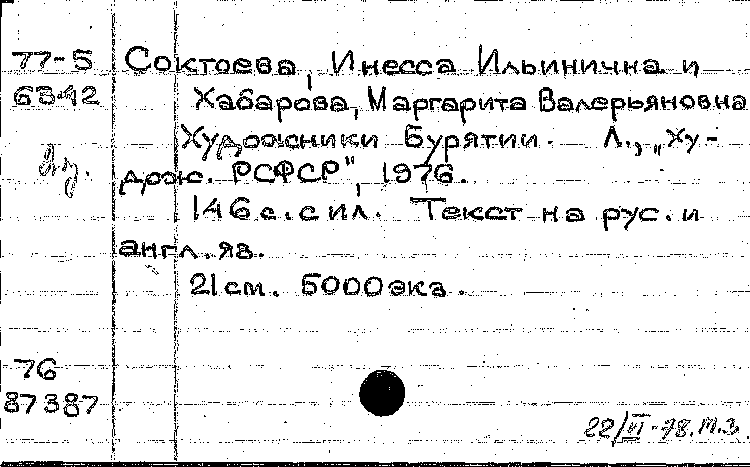 77-5 Соктоева, Инесса Ильинична и
6342 Хабарова, Маргарита Валерьяновна
Художники Бурятии. Л., „Ху-
дож. РСФСР", 1976.
146 с. с ил. Текст на рус. и
англ. яз.
21 см. 5000 экз.
76
87387
22/VI-78. М.З.